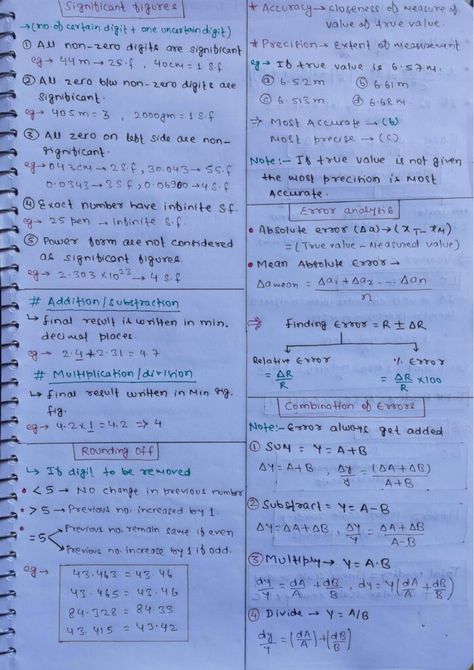 Significant figures
→ (no. of certain digit + one uncertain digit)
① All non-zero digits are significant
eg → 44m → 2 S.f, 40cm = 1 S.f
② All zero b/w non-zero digits are
significant.
eg → 405m = 3, 2000gm = 1 S.f
③ All zero on left side are non-
significant.
eg → 043cm → 2 S.f, 30.043 → 5 S.f
0.0343 → 3 S.f, 0.06900 → 4 S.f
④ Exact number have infinite S.f.
eg → 25 pen → infinite S.f
⑤ Power form are not considered
as significant figures.
eg → 2.303 x 10²³ → 4 S.f
# Addition/subtraction
↳ final result is written in min.
decimal places.
eg → 2.4 + 2.31 = 4.7
# Multiplication/division
↳ final result written in Min. sig.
fig.
eg → 4.2 x 1 = 4.2 ⇒ 4
Rounding Off
↳ If digit to be removed
• < 5 → No change in previous number
• > 5 → Previous no. increased by 1.
• = 5 Previous no. remain same if even
Previous no. increase by 1 if odd.
eg →
43.463 = 43.46
43.465 = 43.46
84.328 = 84.33
43.415 = 43.42
★ Accuracy → closeness of measure of
value of true value.
★ Precision → Extent of measurement
eg → If true value is 6.57m.
ⓐ 6.52m ⓑ 6.61m
ⓒ 6.513m ⓓ 6.68m
⇒ Most Accurate → (b)
Most precise → (c)
Note:- If true value is not given
the most precision is most
Accurate.
Error analysis
• Absolute error (Δa) → (x_T - x_M)
= (True value - Measured value)
• Mean Absolute Error →
Δamean = Δa₁ + Δa₂ ... Δan / n
⇒ Finding Error = R ± ΔR
Relative Error % Error
= ΔR/R = ΔR/R x100
Combination of Errors
Note:- Error always get added
① SUM = Y = A+B
ΔY = A+ΔB, ΔY/Y = (ΔA+ΔB)/A+B
② Substract = Y = A-B
ΔY = ΔA+ΔB, ΔY/Y = ΔA+ΔB/A-B
③ Multiply → Y = A·B
dy/Y = dA/A + dB/B, dY = Y(dA/A + dB/B)
④ Divide → Y = A/B
dy/Y = (dA/A) + (dB/B)